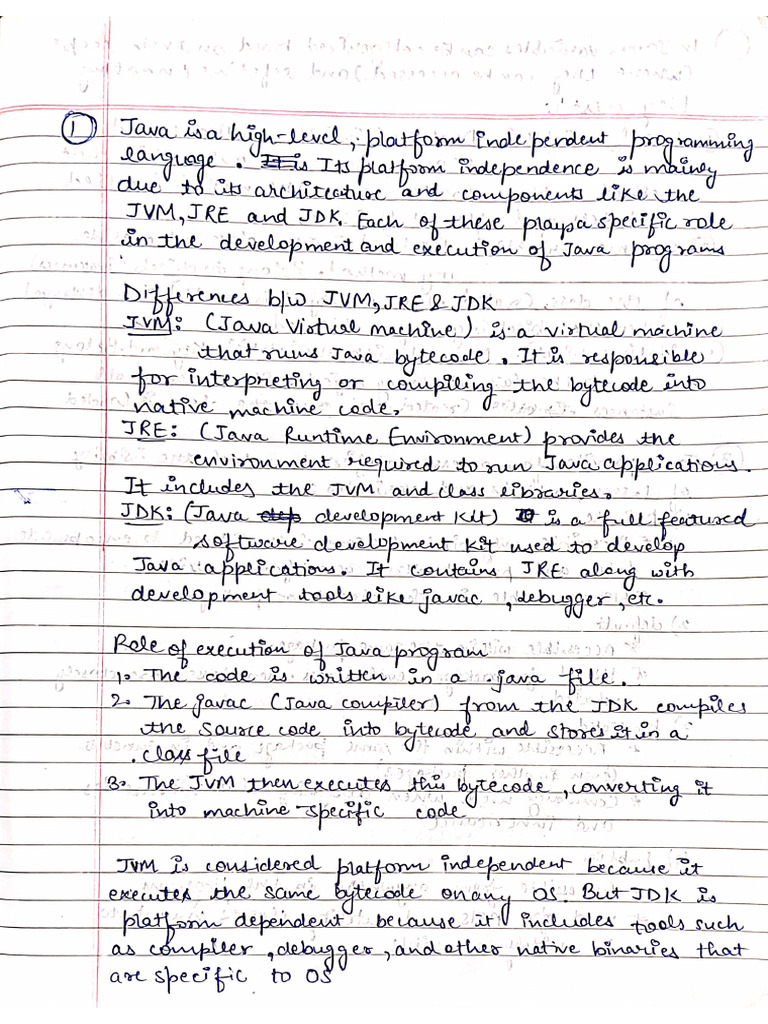 1 Java is a high-level, platform independent programming
language. It is Its platform independence is mainly
due to its architecture and components like the
JVM, JRE and JDK. Each of these plays a specific role
in the development and execution of Java programs
Differences b/w JVM, JRE & JDK
JVM: (Java Virtual machine) is a virtual machine
that runs Java bytecode. It is responsible
for interpreting or compiling the bytecode into
native machine code.
JRE: (Java Runtime Environment) provides the
environment required to run Java applications.
It includes the JVM and class libraries.
JDK: (Java development Kit) is a full featured
software development kit used to develop
Java applications. It contains JRE along with
development tools like javac, debugger, etc.
Role of execution of Java program
1. The code is written in a .java file.
2. The javac (Java compiler) from the JDK compiles
the source code into bytecode and stores it in a
.class file
3. The JVM then executes this bytecode, converting it
into machine-specific code
JVM is considered platform independent because it
executes the same bytecode on any OS. But JDK is
platform dependent because it includes tools such
as compiler, debugger, and other native binaries that
are specific to OS